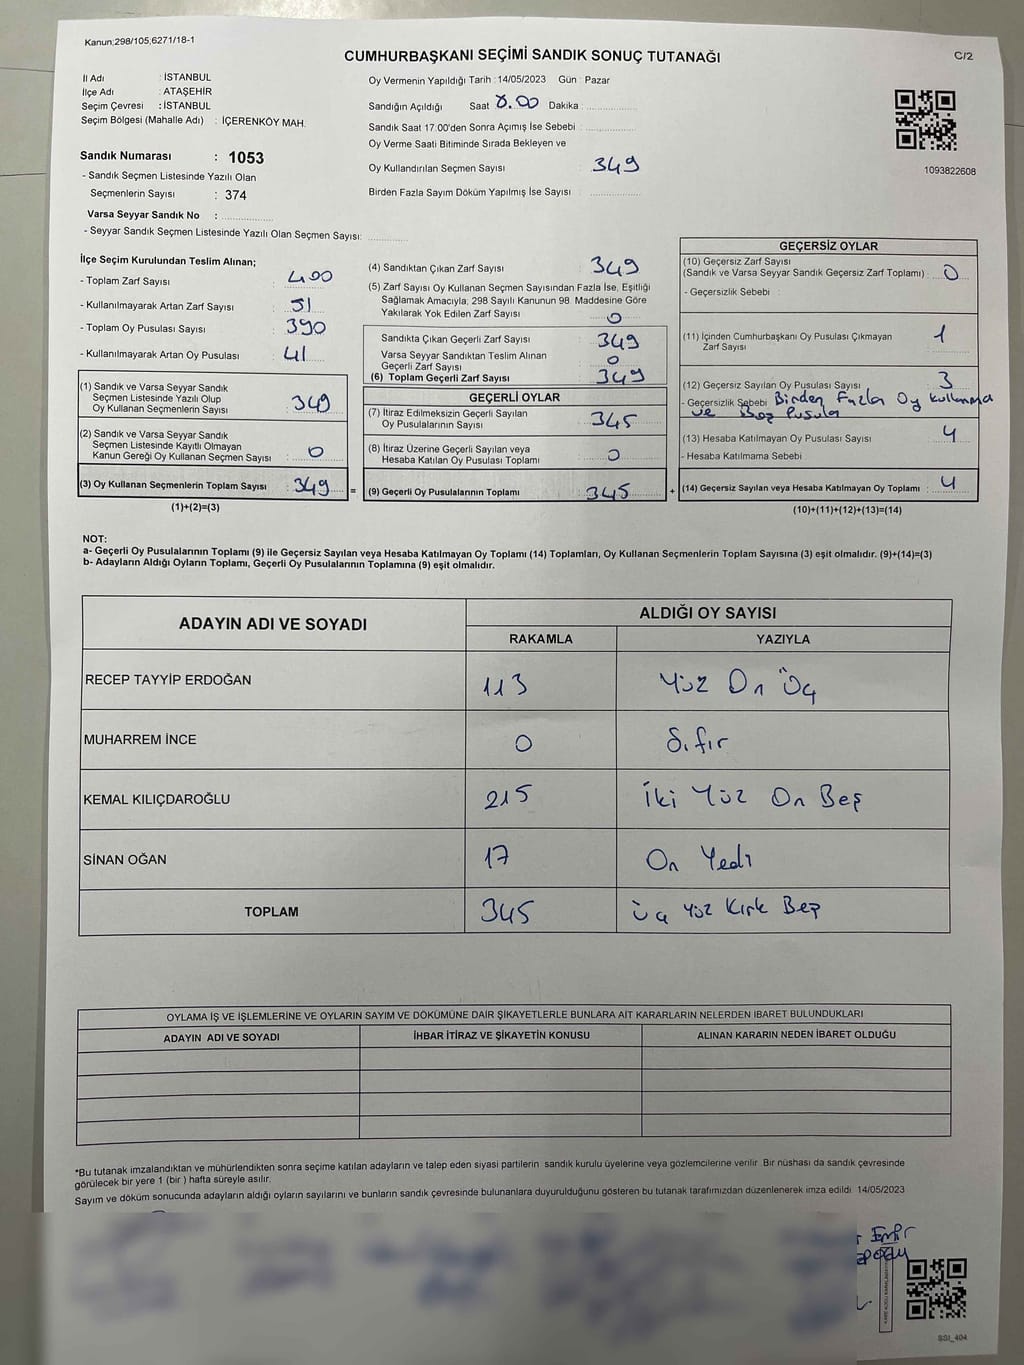 Kanun;298/105,6271/18-1
CUMHURBAŞKANI SEÇİMİ SANDIK SONUÇ TUTANAĞI
C/2
İl Adı : İSTANBUL
İlçe Adı : ATAŞEHİR
Seçim Çevresi : İSTANBUL
Seçim Bölgesi (Mahalle Adı) : İÇERENKÖY MAH.
Sandık Numarası : 1053
- Sandık Seçmen Listesinde Yazılı Olan
Seçmenlerin Sayısı : 374
Varsa Seyyar Sandık No :
- Seyyar Sandık Seçmen Listesinde Yazılı Olan Seçmen Sayısı:
Oy Vermenin Yapıldığı Tarih :14/05/2023 Gün : Pazar
Sandığın Açıldığı Saat 8.00 Dakika :
Sandık Saat 17.00'den Sonra Açımış İse Sebebi :
Oy Verme Saati Bitiminde Sırada Bekleyen ve
Oy Kullandırılan Seçmen Sayısı : 349
Birden Fazla Sayım Döküm Yapılmış İse Sayısı :
1093822608
İlçe Seçim Kurulundan Teslim Alınan;
- Toplam Zarf Sayısı : 400
- Kullanılmayarak Artan Zarf Sayısı : 51
- Toplam Oy Pusulası Sayısı : 390
- Kullanılmayarak Artan Oy Pusulası : 41
(1) Sandık ve Varsa Seyyar Sandık
Seçmen Listesinde Yazılı Olup
Oy Kullanan Seçmenlerin Sayısı : 349
(2) Sandık ve Varsa Seyyar Sandık
Seçmen Listesinde Kayıtlı Olmayan
Kanun Gereği Oy Kullanan Seçmen Sayısı : 0
(3) Oy Kullanan Seçmenlerin Toplam Sayısı : 349 =
(1)+(2)=(3)
(4) Sandıktan Çıkan Zarf Sayısı : 349
(5) Zarf Sayısı Oy Kullanan Seçmen Sayısından Fazla İse, Eşitliği
Sağlamak Amacıyla, 298 Sayılı Kanunun 98. Maddesine Göre
Yakılarak Yok Edilen Zarf Sayısı : 0
Sandıkta Çıkan Geçerli Zarf Sayısı : 349
Varsa Seyyar Sandıktan Teslim Alınan
Geçerli Zarf Sayısı : 0
(6) Toplam Geçerli Zarf Sayısı : 349
GEÇERLİ OYLAR
(7) İtiraz Edilmeksizin Geçerli Sayılan
Oy Pusulalarının Sayısı : 345
(8) İtiraz Üzerine Geçerli Sayılan veya
Hesaba Katılan Oy Pusulası Toplamı : 0
(9) Geçerli Oy Pusulalarının Toplamı : 345 +
GEÇERSİZ OYLAR
(10) Geçersiz Zarf Sayısı
(Sandık ve Varsa Seyyar Sandık Geçersiz Zarf Toplamı) : 0
- Geçersizlik Sebebi :
(11) İçinden Cumhurbaşkanı Oy Pusulası Çıkmayan
Zarf Sayısı : 1
(12) Geçersiz Sayılan Oy Pusulası Sayısı : 3
- Geçersizlik Sebebi Birden Fazla Oy Kullanma
ve Boş Pusula
(13) Hesaba Katılmayan Oy Pusulası Sayısı : 4
- Hesaba Katılmama Sebebi
(14) Geçersiz Sayılan veya Hesaba Katılmayan Oy Toplamı : 4
(10)+(11)+(12)+(13)=(14)
NOT:
a- Geçerli Oy Pusulalarının Toplamı (9) ile Geçersiz Sayılan veya Hesaba Katılmayan Oy Toplamı (14) Toplamları, Oy Kullanan Seçmenlerin Toplam Sayısına (3) eşit olmalıdır. (9)+(14)=(3)
b- Adayların Aldığı Oyların Toplamı, Geçerli Oy Pusulalarının Toplamına (9) eşit olmalıdır.
ADAYIN ADI VE SOYADI
ALDIĞI OY SAYISI
RAKAMLA YAZIYLA
RECEP TAYYİP ERDOĞAN 113 Yüz On Üç
MUHARREM İNCE 0 Sıfır
KEMAL KILIÇDAROĞLU 215 İki Yüz On Beş
SİNAN OĞAN 17 On Yedi
TOPLAM 345 Üç Yüz Kırk Beş
OYLAMA İŞ VE İŞLEMLERİNE VE OYLARIN SAYIM VE DÖKÜMÜNE DAİR ŞİKAYETLERLE BUNLARA AİT KARARLARIN NELERDEN İBARET BULUNDUKLARI
ADAYIN ADI VE SOYADI İHBAR İTİRAZ VE ŞİKAYETİN KONUSU ALINAN KARARIN NEDEN İBARET OLDUĞU
*Bu tutanak imzalandıktan ve mühürlendikten sonra seçime katılan adayların ve talep eden siyasi partilerin sandık kurulu üyelerine veya gözlemcilerine verilir. Bir nüshası da sandık çevresinde
görülecek bir yere 1 (bir ) hafta süreyle asılır.
Sayım ve döküm sonucunda adayların aldığı oyların sayılarını ve bunların sandık çevresinde bulunanlara duyurulduğunu gösteren bu tutanak tarafımızdan düzenlenerek imza edildi. 14/05/2023
SSI_404